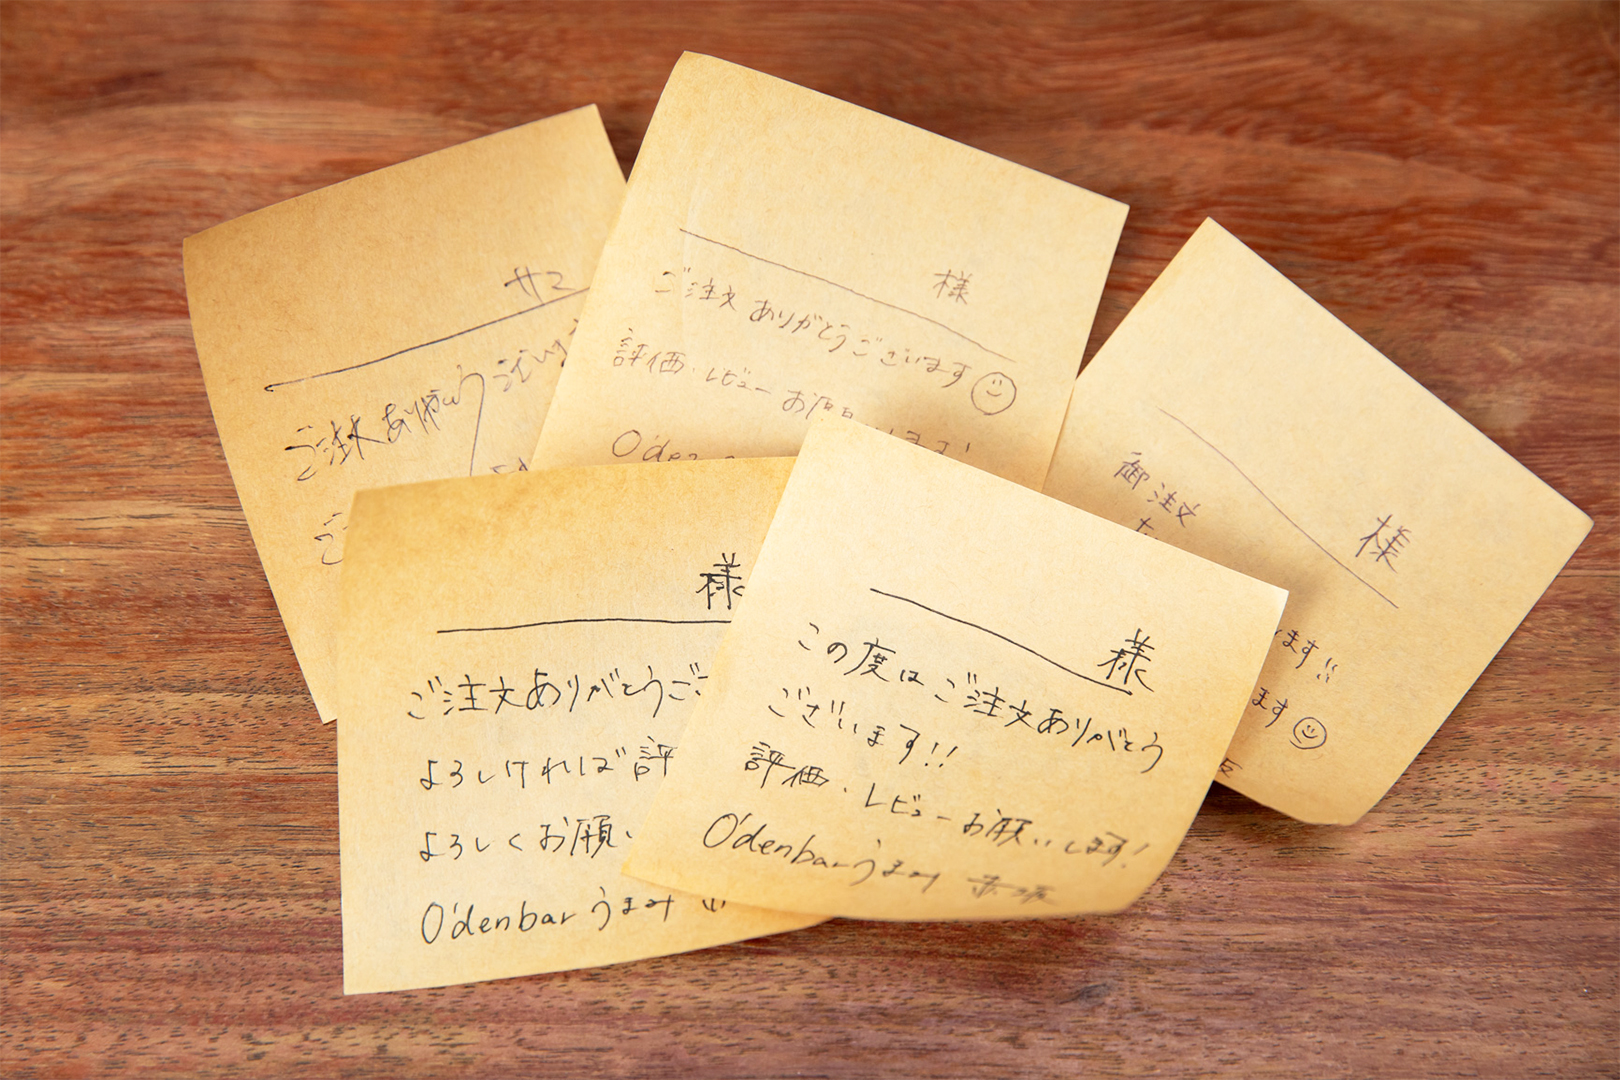 サマ
ご注文ありがとうございま
様
ご注文 ありがとうございます
評価・レビュー お願
O'den
様
御注文
ます!!
ます
様
ご注文ありがとうご
よろしければ評
よろしくお願い
O'denbar うまみ
様
この度はご注文ありがとう
ございます!!
評価・レビューお願いします!
O'denbar うまみ 赤坂